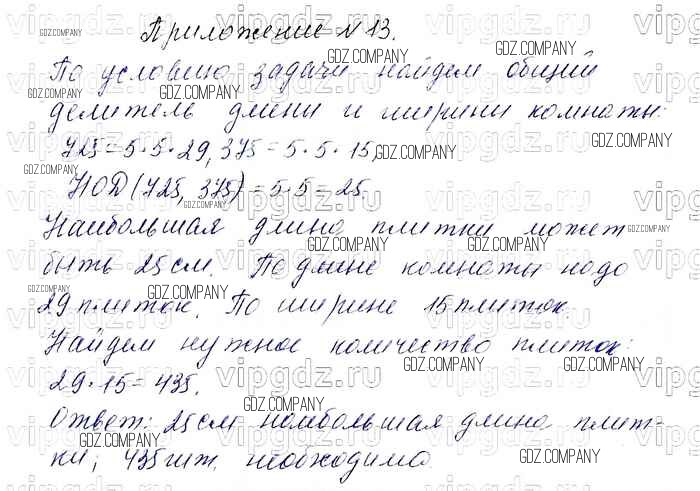 Приложение № 13.
По условию задачи найдем общий
делитель длины и ширины комнаты:
725 = 5 · 5 · 29, 375 = 5 · 5 · 15,
НОД (725, 375) = 5·5 = 25.
Наибольшая длина плитки может
быть 25 см. По длине комнаты надо
29 плиток. По ширине 15 плиток.
Найдем нужное количество плиток:
29 · 15 = 435.
Ответ: 25 см наибольшая длина плит-
ки; 435 шт. необходимо
GDZ.COMPANY
vipgdz.ru